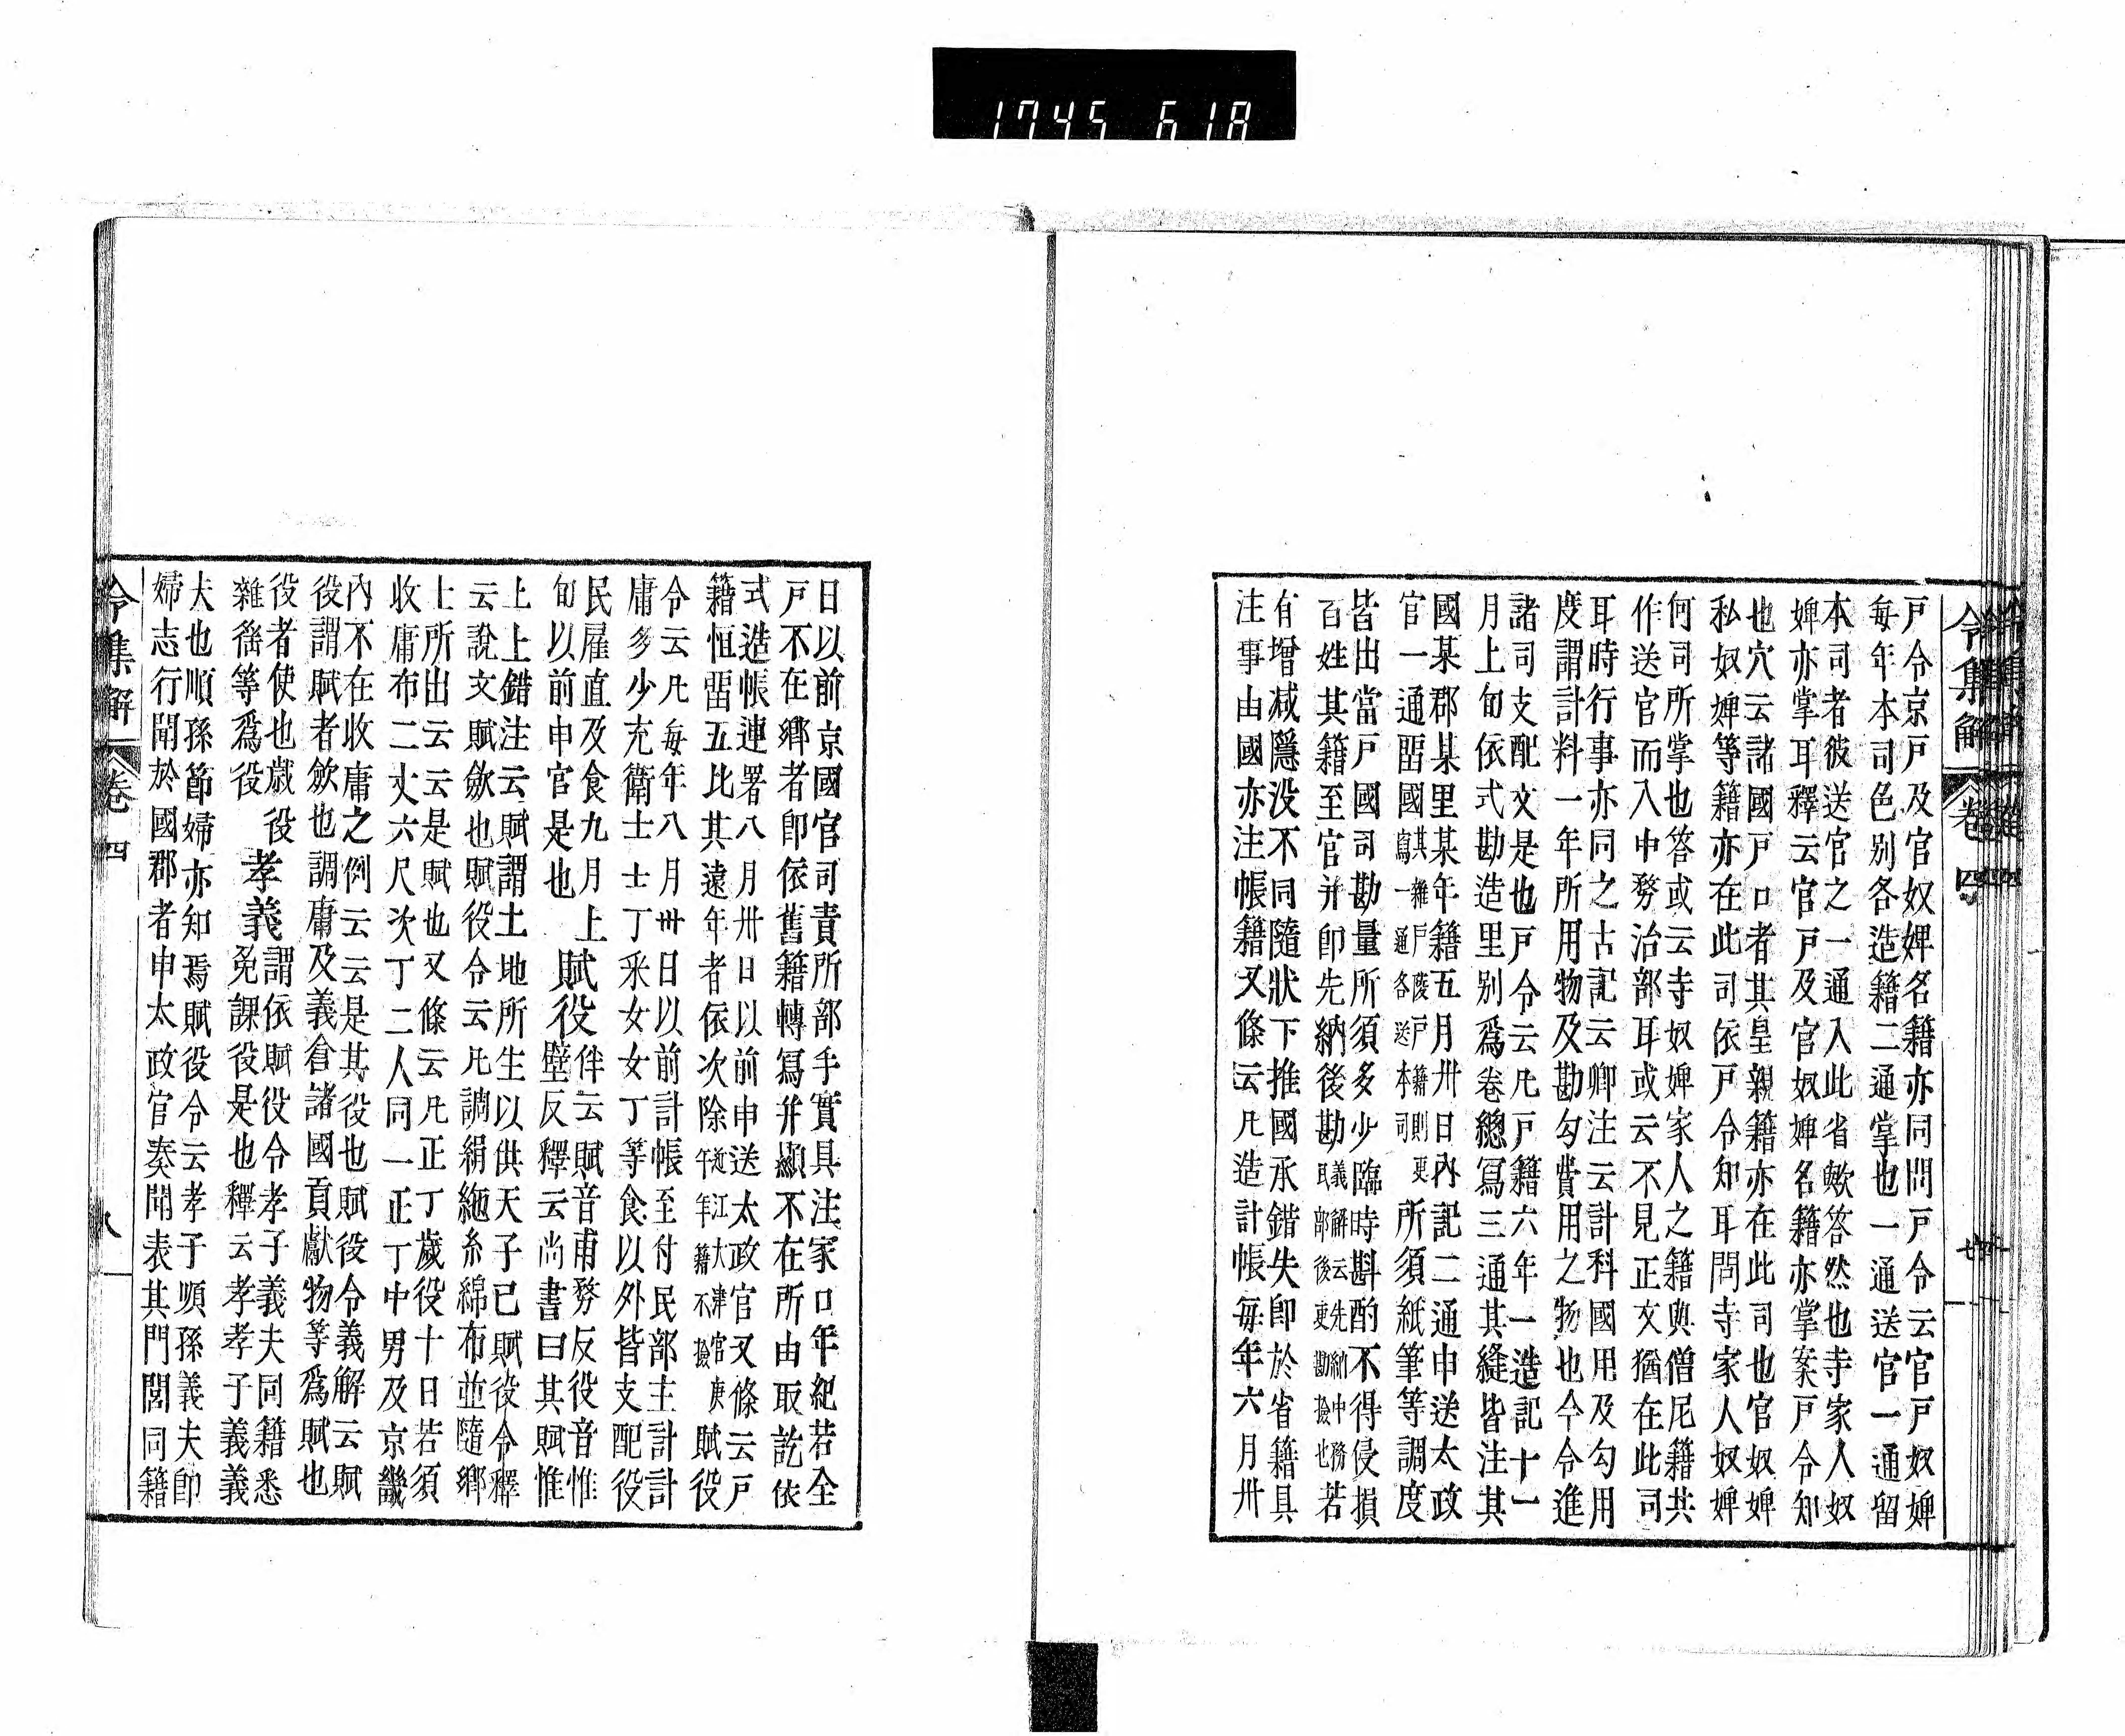 1745 618
令集解 卷四
戸令京戸及官奴婢名籍亦同問戸令云官戸奴婢
毎年本司色別各造籍二通掌也一通送官一通留
本司者彼送官之一通入此省歟答然也寺家人奴
婢亦掌耳釋云官戸及官奴婢名籍亦掌案戸令知
也穴云諸國戸口者其皇親籍亦在此司也官奴婢
私奴婢等籍亦在此司依戸令知耳問寺家人奴婢
何司所掌也答或云寺奴婢家人之籍與僧尼籍共
作送官而入中務治部耳或云不見正文猶在此司
耳時行事亦同之古記云卿注云計科國用及勾用
度謂計料一年所用物及勘勾費用之物也今令進
諸司支配文是也戸令云凡戸籍六年一造記十一
月上旬依式勘造里別爲卷總寫三通其縫皆注其
國某郡某里某年籍五月卅日內記二通申送太政
官一通畱國其雜戸陵戸籍則更寫一通各送本司所須紙筆等調度
皆出當戸國司勘量所須多少臨時斟酌不得侵損
百姓其籍至官并即先納後勘義解云先納中務民部後更勘撿也若
有增减隱没不同隨狀下推國承錯失即於省籍具
注事由國亦注帳籍又條云凡造計帳毎年六月卅
日以前京國官司責所部手實具注家口年紀若全
戸不在鄉者即依舊籍轉寫并顯不在所由取訖依
式造帳連署八月卅日以前申送太政官又條云戸
籍恒畱五比其遠年者依次除近江大津官庚午年籍不撿賦役
令云凡毎年八月卅日以前計帳至付民部主計計
庸多少充衛士士丁釆女女丁等食以外皆支配役
民雇直及食九月上
旬以前申官是也
賦役
伴云賦音甫務反役音惟
壁反釋云尚書曰其賦惟
上上錯注云賦謂土地所生以供天子已賦役令釋
云說文賦斂也賦役令云凡調絹絁糸綿布並隨鄉
土所出云云是賦也又條云凡正丁歲役十日若須
收庸布二丈六尺次丁二人同一正丁中男及京畿
內不在收庸之例云云是其役也賦役令義解云賦
役謂賦者斂也調庸及義倉諸國貢獻物等爲賦也
役者使也歲役
雜徭等爲役
孝義
謂依賦役令孝子義夫同籍悉
免課役是也釋云孝孝子義義
夫也順孫節婦亦知焉賦役令云孝子順孫義夫節
婦志行聞於國郡者申太政官奏聞表其門閭同籍
令集解 卷四 八